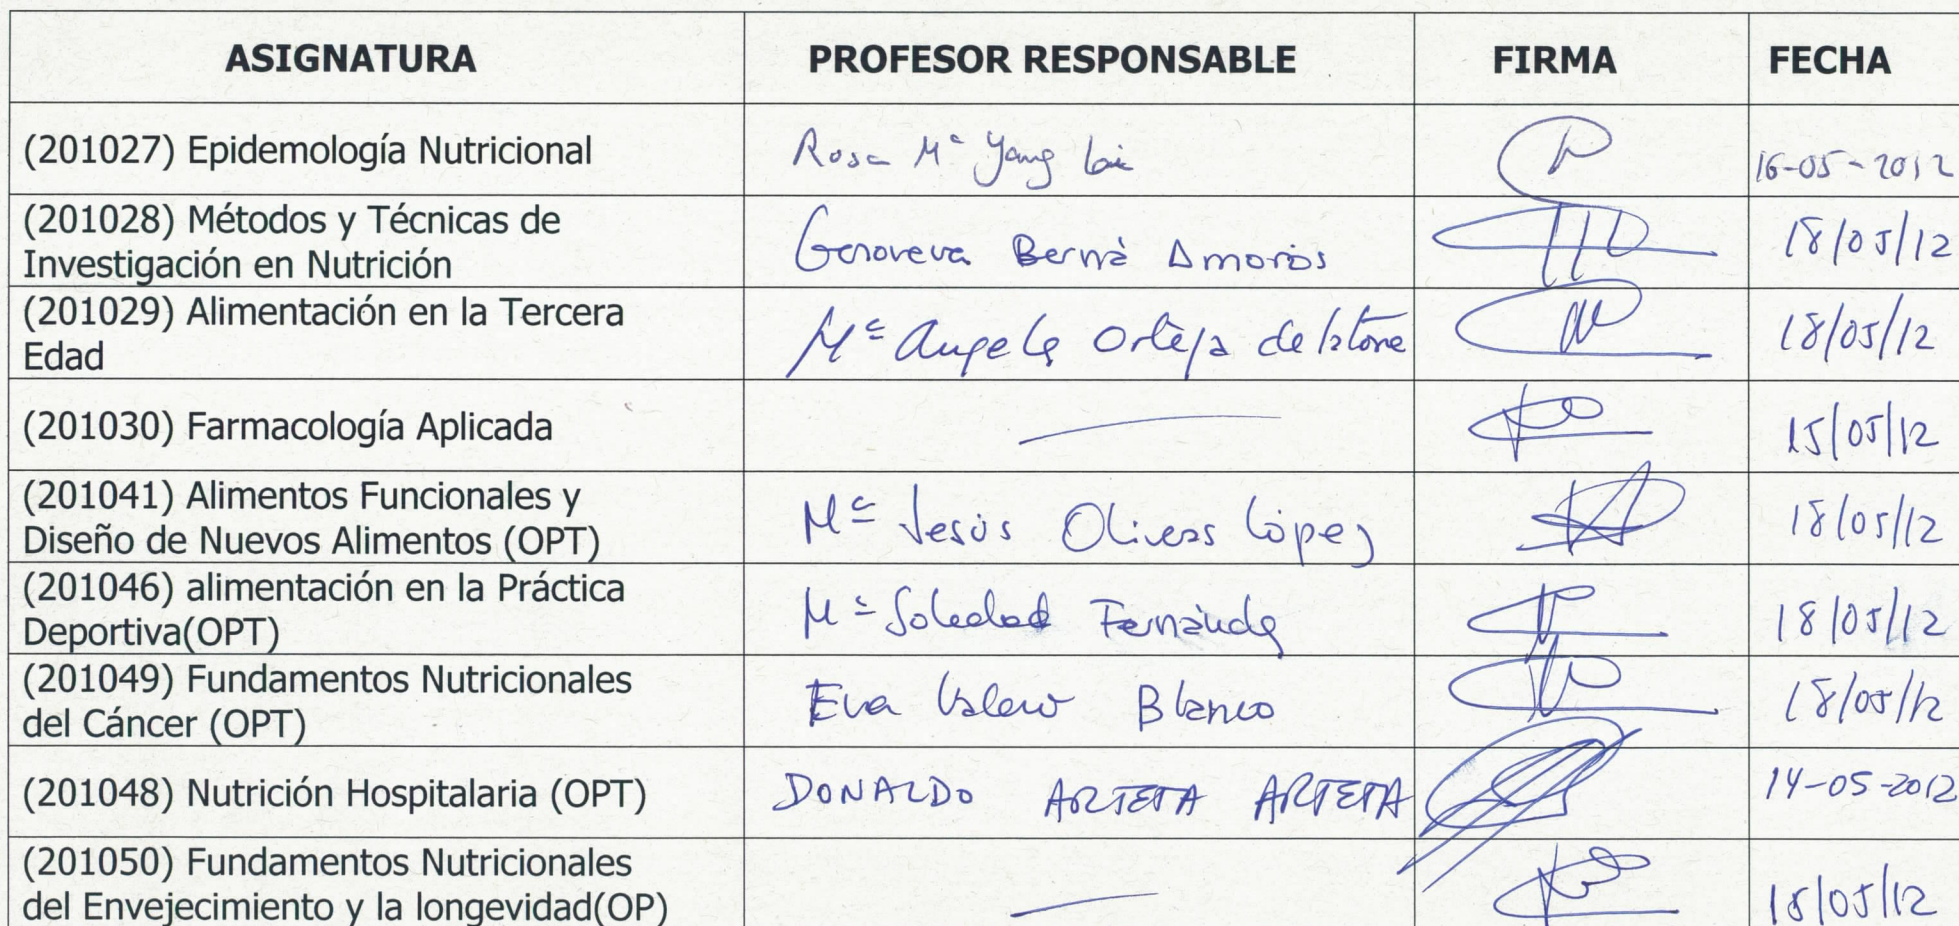 ASIGNATURA PROFESOR RESPONSABLE FIRMA FECHA
(201027) Epidemología Nutricional Rosa Mª Yang 16-05-2012
(201028) Métodos y Técnicas de
Investigación en Nutrición Genoveva Berná Amorós 18/05/12
(201029) Alimentación en la Tercera
Edad Mª Angeles Ortega de la Torre 18/05/12
(201030) Farmacología Aplicada 15/05/12
(201041) Alimentos Funcionales y
Diseño de Nuevos Alimentos (OPT) Mª Jesús Oliveras López 18/05/12
(201046) alimentación en la Práctica
Deportiva(OPT) Mª Soledad Fernández 18/05/12
(201049) Fundamentos Nutricionales
del Cáncer (OPT) Eva Valero Blanco 18/05/12
(201048) Nutrición Hospitalaria (OPT) DONALDO ARTETA ARTETA 14-05-2012
(201050) Fundamentos Nutricionales
del Envejecimiento y la longevidad(OP) /05/12